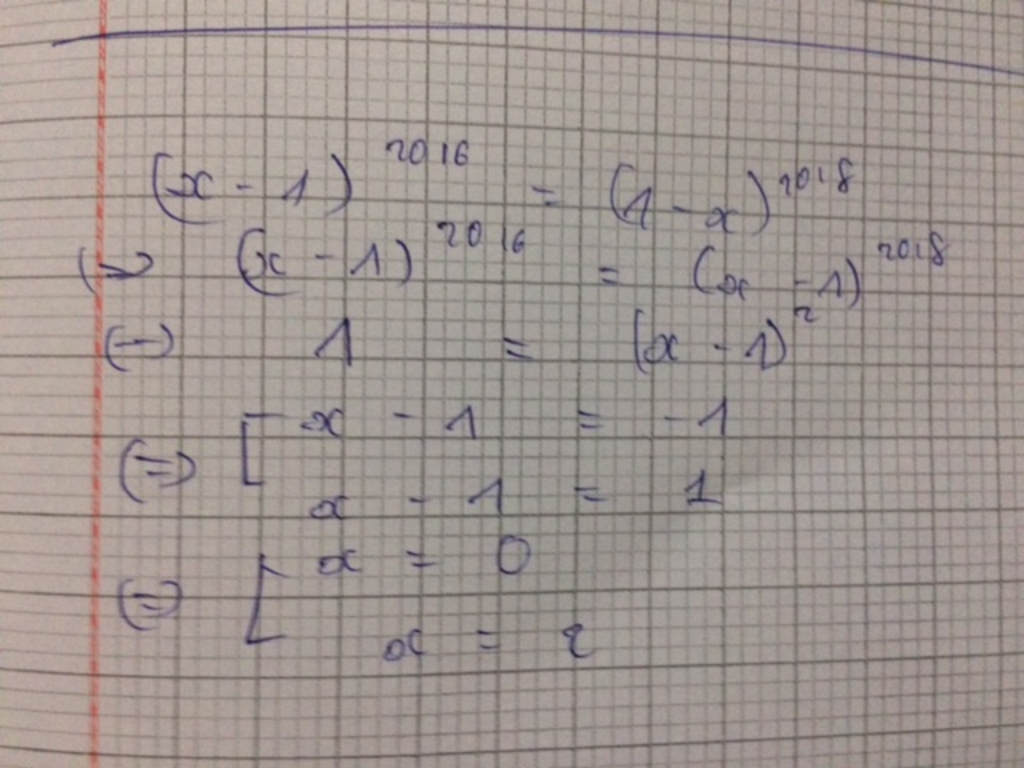 (x - 1)^2016 = (1 - x)^2018
(=) (x - 1)^2016 = (x - 1)^2018
(=) 1 = (x - 1)^2
(=) [ x - 1 = -1
x - 1 = 1
(=) [ x = 0
x = 2